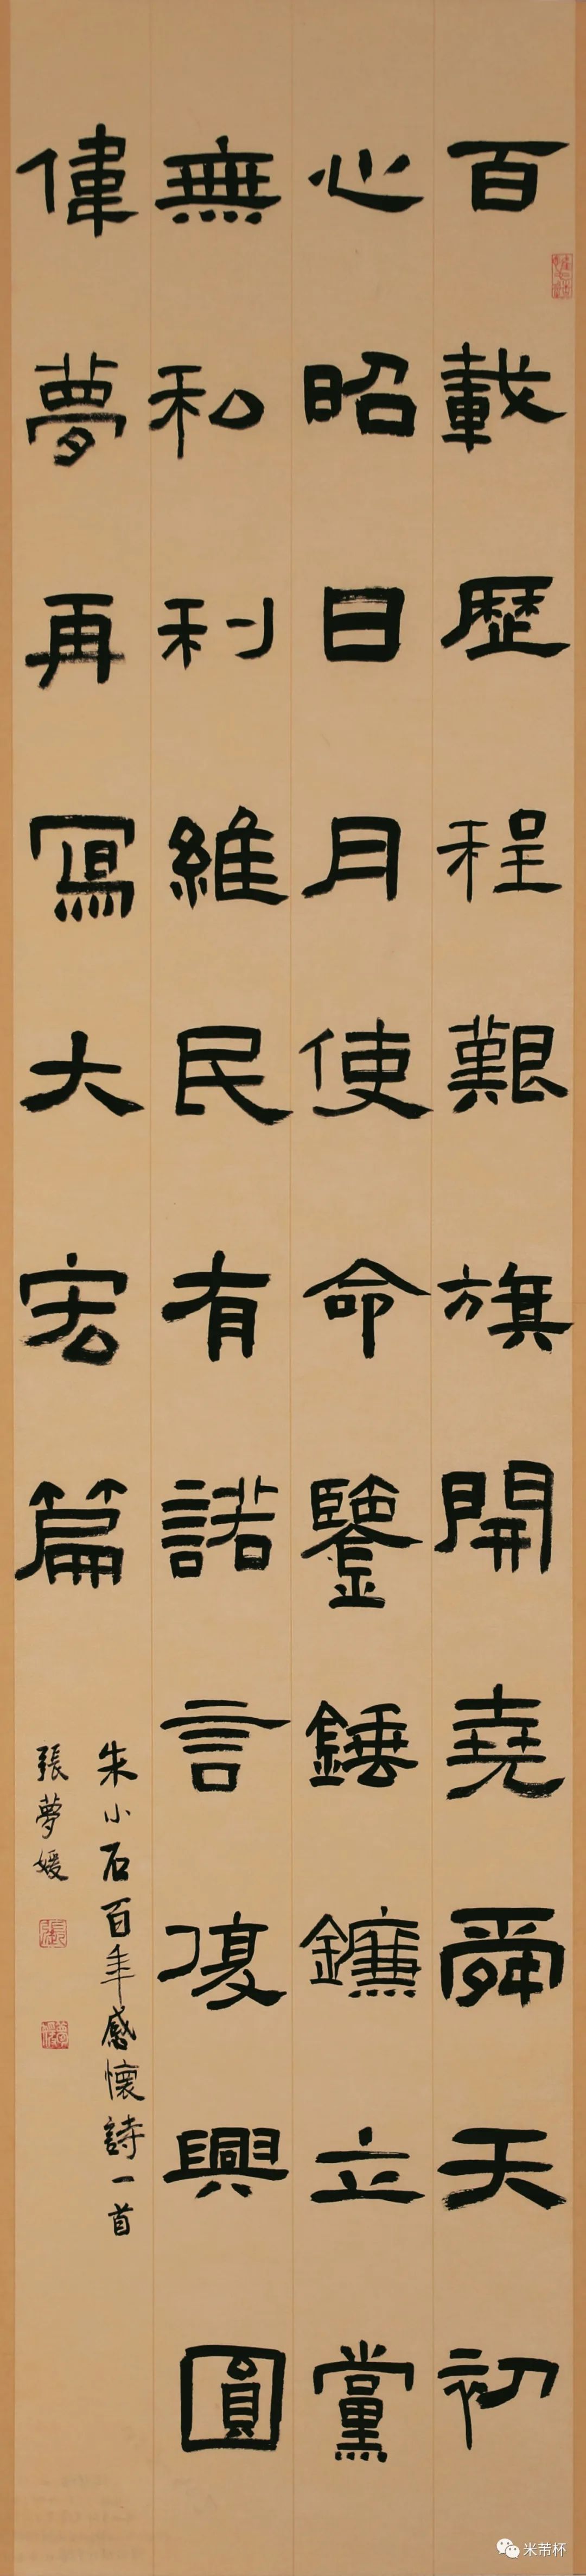 百載歷程艱旗開堯舜天初
心昭日月使命鑒錘鐮立黨
無和利維民有諾言復興圓
偉夢再寫大宏篇
朱小石百年感懷詩一首
張夢媛
米芾杯